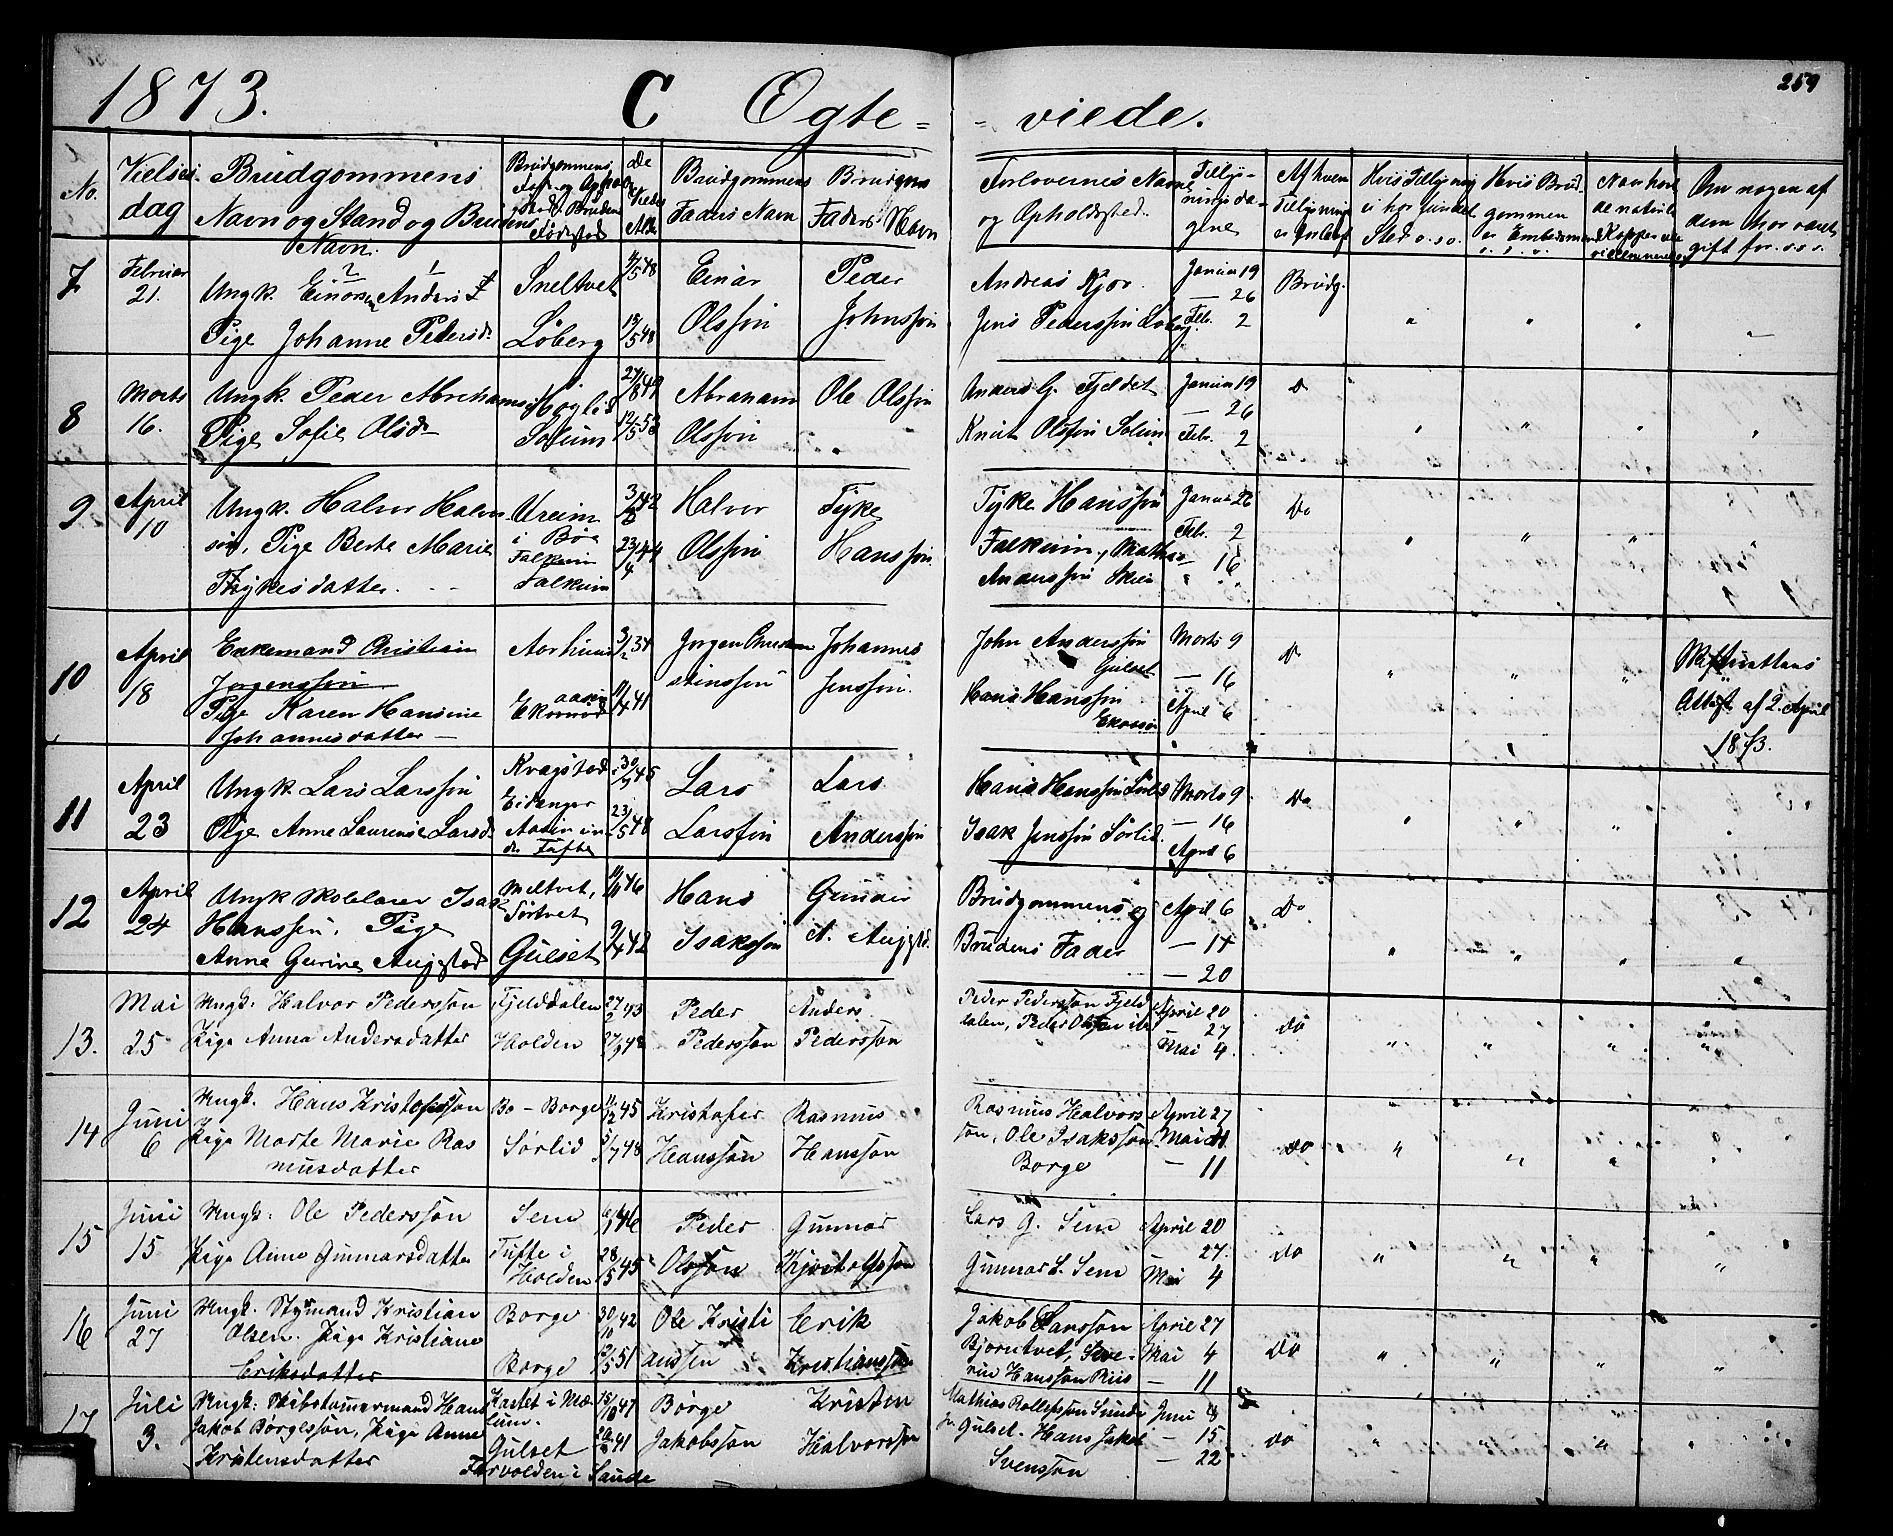 259
1873. C Egte= - viede.
No. Vielses- dag Brudgommens Navn og Stand og Brudens Navn.
De Viedes
Brudgommens Faders Navn Brudens Faders Navn
Forlovernes Navne og Opholdssted. Tillys- nings da- gene
Af hvem Tillysning er
Hvis Tillysning ei har fundet Sted o.s.v.
Hvis Brud- gommen er Embedsmand o.s.v.
Om nogen af dem har været gift før o.s.v.
7 Februar 21. Ungk. Einarsen Anders
Pige Johanne Pedersd.
Sneltvet
Løberg
4/5 48
18/5 48
Einar Olsson
Peder Johnsson
Andreas Kjør.
Jens Pedersson Løberg
Januar 19
— 26
Febr. 2
Brudg.
8 Marts 16. Ungk. Peder Abrahams
Pige Sofie Olsd
Høglid
Solum
27/8 49
12/5 53
Abraham Olsson
Ole Olsson
Anders G. Fjeldet
Knut Olsson Solum
Januar 19
— 26
Febr. 2
Do
9 April 10 Ungk. Halvor Halvor-
son, Pige Berte Marie
Tykesdatter.
i Bøe
Falkum
Halvor Olsson
Tyke Hansson
Tyke Hansson
Falkum, Mathias
Andersson Skien
Januar 26
Febr. 2
— 16
Do
10 April 18 Enkemand Christian
Jørgensson
Pige Karen Hansine
Johannesdatter
Aarhuus
3/2 34
11/4 41
Jørgen Christensson
Johannes Jensson.
John Andersson
Gulset
Hans Hansson
Marts 9
— 16
April 6
Do
Skifterettens
Attest af 2. April
1873.
11 April 23 Ungk. Lars Larsson
Pige Anne Laurense Larsd.
Eidanger
30/9 45
23/5 48
Lars Larsson
Lars Andersson
Hans Hansson Sørlid
Isak Jensson Sørlid.
Marts 9
— 16
April 6
Do
12 April 24 Ungk Skolelærer Isak
Hansson, Pige
Anne Gurine Augestad
Meltvet,
Sørtvet
Gulset
11/11 46
9/4 42
Hans Isaksson
Gunner A. Augestd.
Brudgommens og
Brudens Fader
April 6
— 14
— 20
Do
13. Mai 25 Ungk. Halvor Pedersson
Pige Anna Andersdatter
Fjelddalen
Holden
Peder Pedersson
Anders Pedersson
Peder Pedersson Fjeld
dalen, Peder Olsson ibd
April 20
— 27
Mai 4.
do
14 Juni 6 Ungk. Hans Kristofersson
Pige Marte Marie Ras
musdatter
Bø - Borge
Sørlid
11/12 45
5/7 48
Kristofer Hansson
Rasmus Hansson
Rasmus Halvors
son, Ole Isaksson
Borge
April 27
Mai 4
— 11
do
15 Juni 15 Ungk. Ole Pedersson
Pige Anne Gunnarsdatter
Sem
Tufte i
Holden
6/1 46
28/5 45
Peder Olsson
Gunnar Kjøstolfsson
Lars G. Sem
Gunnar L. Sem
April 20
27.
Mai 4
do
16 Juni 27 Ungk. Styrmand Kristian
Olsen. Pige Kristiane
Eriksdatter
Borge
Borge
30/10 42
12/5 51
Ole Kristi anssen
Erik Kristiansson
Jakob Larsson
Bjørntvet, Seve-
rin Hansson Riis
April 27
Mai 4
— 11
do
17 Juli 3. Ungk. Skibstømmermand Hans
Jakob Børgesson, Pige Anne
Kristensdatter
Kastet i Mæ-
lum.
Gulset
Farvolden i Saude
Børge Jakobsson
Kristen Halvorsson
Mathias Rollefsson Sunde
Gulset. Hans Jakob
Svensson
Juni 8
— 15
— 22
do